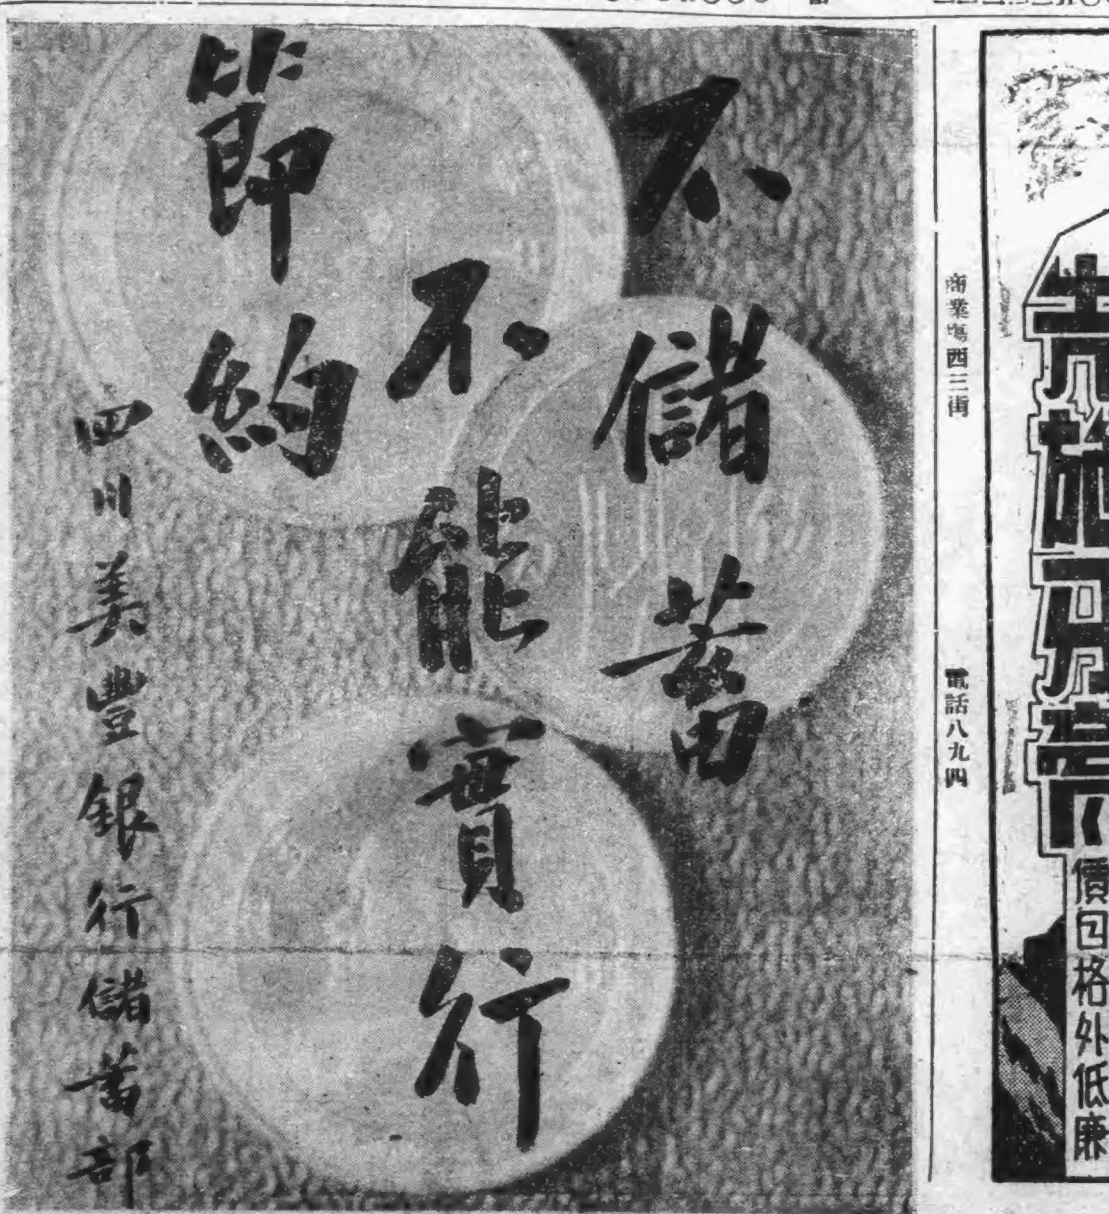 不儲蓄
不能實行
節約
四川美豐銀行儲蓄部
商業場西三街
電話八九四
價目格外低廉